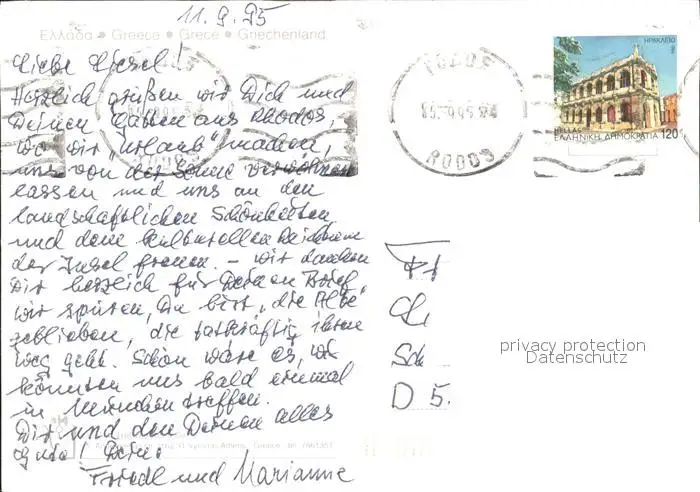 11.9.95
Ελλάδα • Greece • Grèce • Griechenland
Liebe Liesel!
Herzlich grüßen wir Dich und
Deinen Gatten aus Rhodos,
wo wir "Urlaub" machen,
uns von der Sonne verwöhnen
lassen und uns an den
landschaftlichen Schönheiten
und dem kulturellen Reichtum
der Insel freuen. – Wir danken
Dir herzlich für Deinen Brief,
wir spüren, Du bist "die Alte"
geblieben, die tatkräftig ihren
Weg geht. Schön wäre es, wir
könnten uns bald einmal
in München treffen.
Dir und den Deinen alles
Gute! Deine
Friedl und Marianne
ΡΟΔΟΣ
RODOS
ΗΡΑΚΛΕΙΟ
HELLAS
ΕΛΛΗΝΙΚΗ ΔΗΜΟΚΡΑΤΙΑ 120
Sch
D 5.
privacy protection
Datenschutz